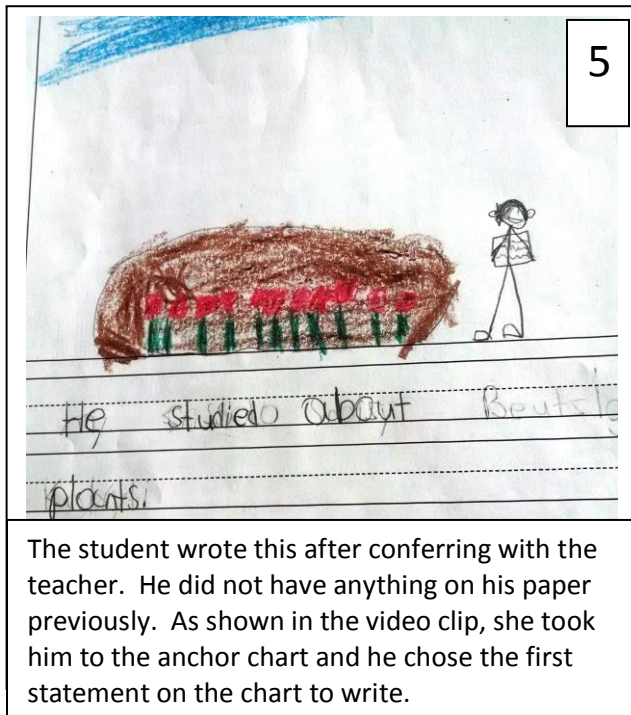 5
He studied abayt
plants.
The student wrote this after conferring with the
teacher. He did not have anything on his paper
previously. As shown in the video clip, she took
him to the anchor chart and he chose the first
statement on the chart to write.